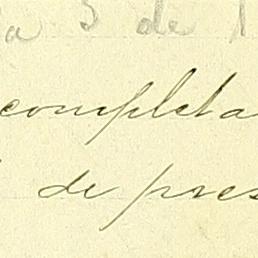 a 3 de 1
completa
de pres